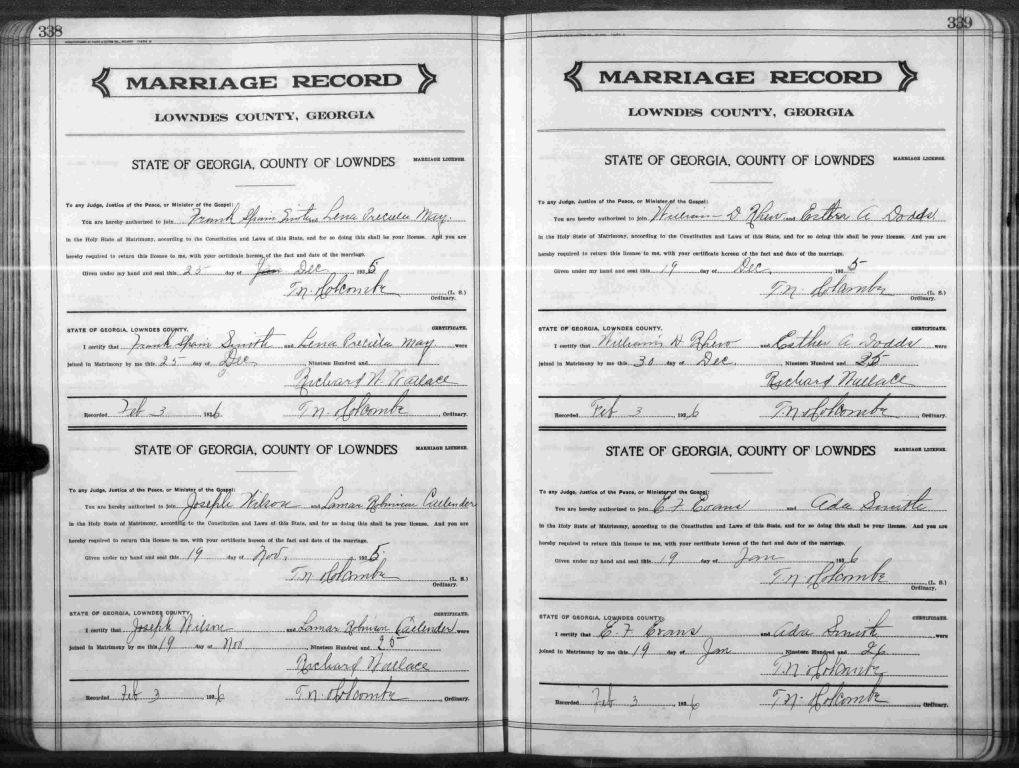 338
MARRIAGE RECORD
LOWNDES COUNTY, GEORGIA
STATE OF GEORGIA, COUNTY OF LOWNDES MARRIAGE LICENSE.
To any Judge, Justice of the Peace, or Minister of the Gospel:
You are hereby authorized to join Frank Spain Smith and Lena Precielu May.
in the Holy State of Matrimony, according to the Constitution and Laws of this State, and for so doing this shall be your license. And you are
hereby required to return this license to me, with your certificate hereon, of the fact and date of the marriage.
Given under my hand and seal this 25 day of Dec. 1925
T.N. Holcombe (L. S.)
Ordinary.
STATE OF GEORGIA, LOWNDES COUNTY. CERTIFICATE.
I certify that Frank Spain Smith and Lena Precielu May were
joined in Matrimony by me this 25 day of Dec. Nineteen Hundred and
Richard W. Wallace
Recorded Feb 3 1926 T.N. Holcombe Ordinary.
STATE OF GEORGIA, COUNTY OF LOWNDES MARRIAGE LICENSE.
To any Judge, Justice of the Peace, or Minister of the Gospel:
You are hereby authorized to join Joseph Wilson and Lamar Robinson Caelender
in the Holy State of Matrimony, according to the Constitution and Laws of this State, and for so doing this shall be your license. And you are
hereby required to return this license to me, with your certificate hereon, of the fact and date of the marriage.
Given under my hand and seal this 19 day of Nov. 1925
T.N. Holcombe (L. S.)
Ordinary.
STATE OF GEORGIA, LOWNDES COUNTY. CERTIFICATE.
I certify that Joseph Wilson and Lamar Robinson Caelender were
joined in Matrimony by me this 19 day of Nov Nineteen Hundred and 25
Richard Wallace
Recorded Feb 3 1926 T.N. Holcombe Ordinary.
339
MARRIAGE RECORD
LOWNDES COUNTY, GEORGIA
STATE OF GEORGIA, COUNTY OF LOWNDES MARRIAGE LICENSE.
To any Judge, Justice of the Peace, or Minister of the Gospel:
You are hereby authorized to join William D Rhew and Esther A Dodds
in the Holy State of Matrimony, according to the Constitution and Laws of this State, and for so doing this shall be your license. And you are
hereby required to return this license to me, with your certificate hereon, of the fact and date of the marriage.
Given under my hand and seal this 19 day of Dec. 1925
T.N. Holcombe (L. S.)
Ordinary.
STATE OF GEORGIA, LOWNDES COUNTY. CERTIFICATE.
I certify that William D Rhew and Esther A Dodds were
joined in Matrimony by me this 30 day of Dec. Nineteen Hundred and 25
Richard Wallace
Recorded Feb 3 1926 T.N. Holcombe Ordinary.
STATE OF GEORGIA, COUNTY OF LOWNDES MARRIAGE LICENSE.
To any Judge, Justice of the Peace, or Minister of the Gospel:
You are hereby authorized to join E F Evans and Ada Smith
in the Holy State of Matrimony, according to the Constitution and Laws of this State, and for so doing this shall be your license. And you are
hereby required to return this license to me, with your certificate hereon, of the fact and date of the marriage.
Given under my hand and seal this 19 day of Jan 1926
T.N. Holcombe (L. S.)
Ordinary.
STATE OF GEORGIA, LOWNDES COUNTY. CERTIFICATE.
I certify that E. F Evans and Ada Smith were
joined in Matrimony by me this 19 day of Jan Nineteen Hundred and 26
T.N. Holcombe
Recorded Feb 3 1926 T.N. Holcombe Ordinary.